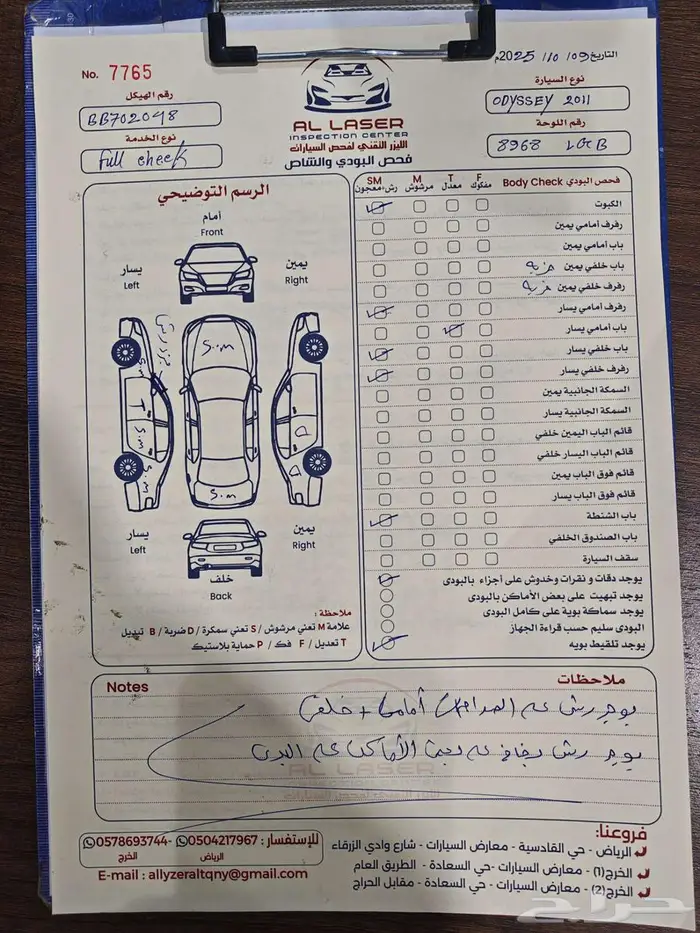 No. 7765
رقم الهيكل
BB702048
نوع الخدمة
full check
AL LASER
INSPECTION CENTER
الليزر التقني لفحص السيارات
فحص البودي والشاص
التاريخ 09/ 10/ 2025م
نوع السيارة
ODYSSEY 2011
رقم اللوحة
8968
الرسم التوضيحي
أمام
Front
يسار
Left
يمين
Right
S.m
S.m
T
S.m
S.m
S.m
D
D
يسار
Left
يمين
Right
خلف
Back
ملاحظة :
علامة M تعني مرشوش / S تعني سمكرة / D ضربة / B تبديل
T تعديل / F فك / P حماية بلاستيك
فحص البودي Body Check
F مفكوك
T معدل
M مرشوش
SM رش+معجون
الكبوت
رفرف أمامي يمين
باب أمامي يمين
باب خلفي يمين ضربه
رفرف خلفي يمين ضربه
رفرف أمامي يسار
باب أمامي يسار
باب خلفي يسار
رفرف خلفي يسار
السمكة الجانبية يمين
السمكة الجانبية يسار
قائم الباب اليمين خلفي
قائم الباب اليسار خلفي
قائم فوق الباب يمين
قائم فوق الباب يسار
باب الشنطة
باب الصندوق الخلفي
سقف السيارة
يوجد دقات و نقرات وخدوش على أجزاء بالبودى
يوجد تبهيت على بعض الأماكن بالبودى
يوجد سماكة بوية على كامل البودى
البودى سليم حسب قراءة الجهاز
يوجد تلقيط بويه
Notes
ملاحظات
يوجد رش عه الصدامات أمامى + خلفى
يوجد رش عه بعض الأماكن عه البدى
AL LASER
للإستفسار : 0504217967 - 0578693744
الرياض
الخرج
E-mail : allyzeraltqny@gmail.com
فروعنا:
الرياض - حي القادسية - معارض السيارات - شارع وادي الزرقاء
الخرج (1) - معارض السيارات -حي السعادة - الطريق العام
الخرج (2) - معارض السيارات - حي السعادة - مقابل الحراج
حراج